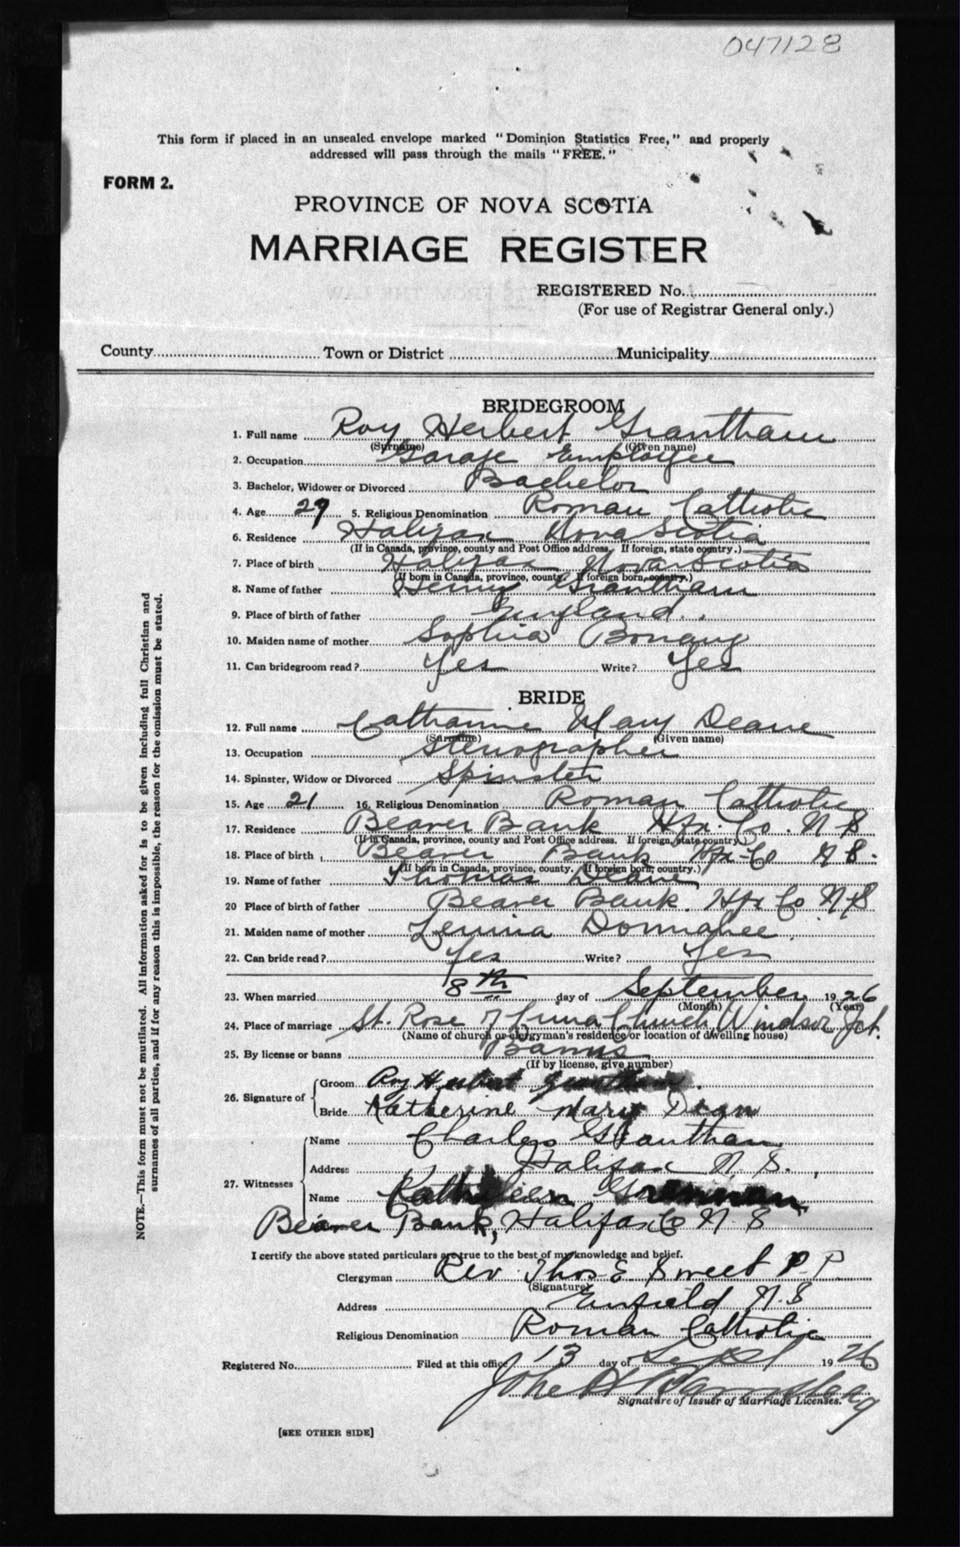 047128
This form if placed in an unsealed envelope marked "Dominion Statistics Free," and properly
addressed will pass through the mails "FREE."
FORM 2.
PROVINCE OF NOVA SCOTIA
MARRIAGE REGISTER
REGISTERED No.
(For use of Registrar General only.)
County Town or District Municipality
BRIDEGROOM
1. Full name Roy Herbert Grantham
(Surname) (Given name)
2. Occupation Garage Employee
3. Bachelor, Widower or Divorced Bachelor
4. Age 29 5. Religious Denomination Roman Catholic
6. Residence Halifax Nova Scotia
(If in Canada, province, county and Post Office address. If foreign, state country.)
7. Place of birth Halifax Nova Scotia
(If born in Canada, province, county. If foreign born, country.)
8. Name of father Henry Grantham
9. Place of birth of father England
10. Maiden name of mother Sophia Bonang
11. Can bridegroom read? Yes Write? Yes
BRIDE
12. Full name Catharine Mary Deane
(Surname) (Given name)
13. Occupation Stenographer
14. Spinster, Widow or Divorced Spinster
15. Age 21 16. Religious Denomination Roman Catholic
17. Residence Beaver Bank Hfx. Co. N S
(If in Canada, province, county and Post Office address. If foreign, state country.)
18. Place of birth Beaver Bank Hfx Co N S.
(If born in Canada, province, county. If foreign born, country.)
19. Name of father Thomas Deane
20 Place of birth of father Beaver Bank. Hfx Co N S
21. Maiden name of mother
22. Can bride read? Yes Write? Yes
23. When married 8th day of September 1926
(Month) (Year)
24. Place of marriage St. Rose of Lima Church Windsor Jct.
(Name of church or clergyman's residence or location of dwelling house)
25. By license or banns Banns
(If by license, give number)
26. Signature of Groom Roy Herbert Grantham.
Bride Katherine Mary Dean
27. Witnesses Name Charles Grantham
Address Halifax N. S.
Name Kathleen
Beaver Bank, Halifax Co N. S
I certify the above stated particulars are true to the best of my knowledge and belief.
Clergyman Rev. Thos E Sweet P. P.
(Signature)
Address Enfield N. S
Religious Denomination Roman Catholic
Registered No. Filed at this office 13 day of Sept 1926
John H
Signature of Issuer of Marriage Licenses.
[SEE OTHER SIDE]
NOTE.—This form must not be mutilated. All information asked for is to be given including full Christian and
surnames of all parties, and if for any reason this is impossible, the reason for the omission must be stated.